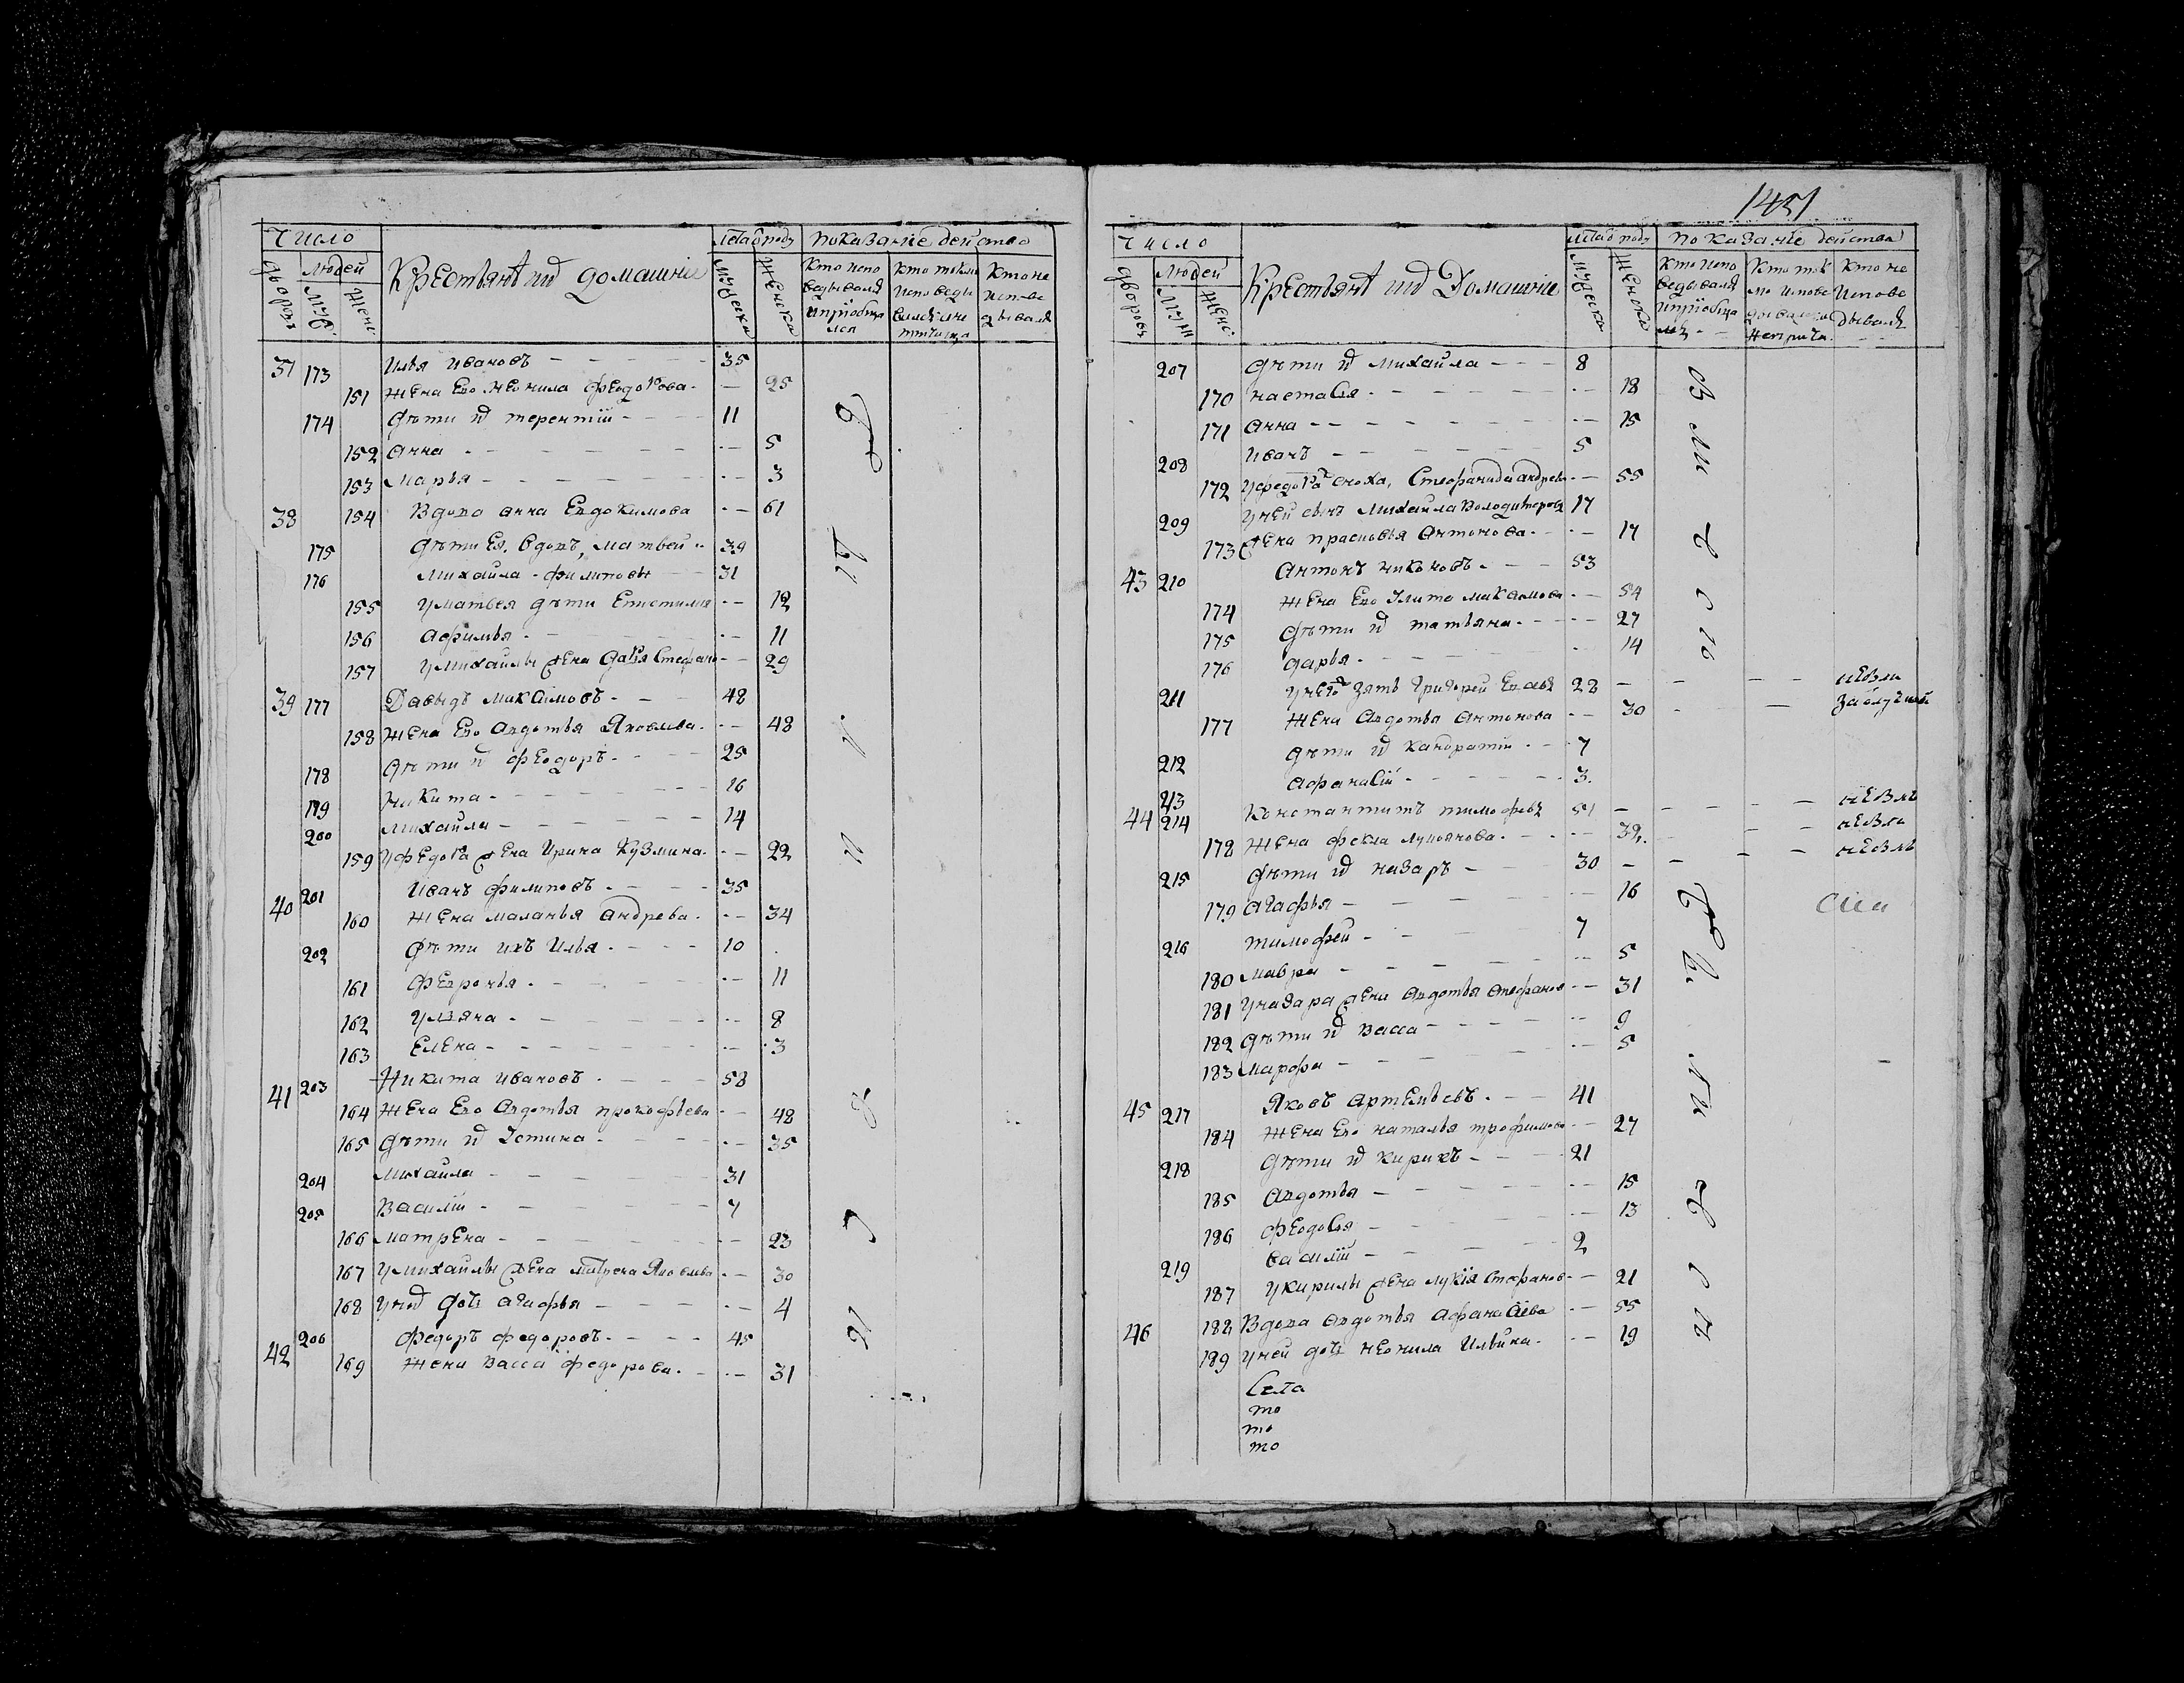 число
Дворовъ
людей
муж.
женс.
Крестьянѣ и их домашніе
мужеска
женска
показаніе действа
кто испо
ведывался
и пріобща
лся
кто токмо
исповеды
вался
кто не
испове
дывался
37 173 Илья Ивановъ 35
151 жена Его Неонила Феодорова 25
174 дѣти их Терентій 11
152 Анна 5
153 Марья 3
38 154 Вдова Анна Евдокимова 61
175 дѣти Ея, вдовъ, Матвей 39
176 Михайла Филиповы 31
155 у Матвея дѣти Епистимия 12
156 Афимья 11
157 у Михайлы жена Дарья Стефано 29
39 177 Давыдъ Максимовъ 48
158 жена Его Авдотья Яковлева 48
178 дѣти их Феодоръ 25
179 Никита 16
200 Михайла 14
159 у Федора жена Ирина Кузмина 22
40 201 Иванъ Филиповъ 35
160 жена Маланья Андрева 34
202 дѣти ихъ Илья 10
161 Февронья 11
162 Ульяна 8
163 Елена 3
41 203 Никита Ивановъ 58
164 жена Его Авдотья Прокофьева 48
165 дѣти их Устина 35
204 Михайла 31
205 Василій 7
166 Матрена 23
167 у Михайлы жена Матрена Яковлева 30
168 у них дочь Агафья 4
42 206 Федоръ Федоровъ 45
169 жена Васса Федорова 31
1451
число
Дворовъ
людей
муж
женс.
Крестьянѣ и их Домашніе
мужеска
женска
показаніе действа
кто испо
ведывался
и пріобща
лся
кто ток
мо испове
дывался
не прича.
кто не
испове
дывался
207 дѣти их Михайла 8
170 Настасья 18
171 Анна 15
208 Иванъ 5
172 у Федора сноха, Стефанида Андрев 55
209 у ней сынъ Михайла Володимеровъ 17
173 жена Прасковья Антонова 17
43 210 Антонъ Никоновъ 53
174 жена Его Улита Максимова 54
175 дѣти их Татьяна 27
176 Дарья 14
211 у него зять Григорей 28
177 жена Авдотья Антонова 30
212 дѣти их Кандратій 7
213 Афанасій 3
44 214 Константинъ Тимофевъ 51
178 жена Фекла Лукьянова 39
215 дѣти их Назаръ 30
179 Агафья 16
216 Тимофей 7
180 Мавра 5
181 у Назара жена Авдотья Стефанов 31
182 дѣти их Васса 9
183 Марфа 5
45 217 Яковъ Артемьевъ 41
184 жена Его Наталья Трофимова 27
218 дѣти их Кирилъ 21
185 Авдотья 15
186 Феодосья 13
219 Василій 2
187 у Кирилы жена Лукія Стефанов 21
46 188 Вдова Авдотья Афанасіева 55
189 у ней дочь Неонила Ильина 19
Села
то
то
то